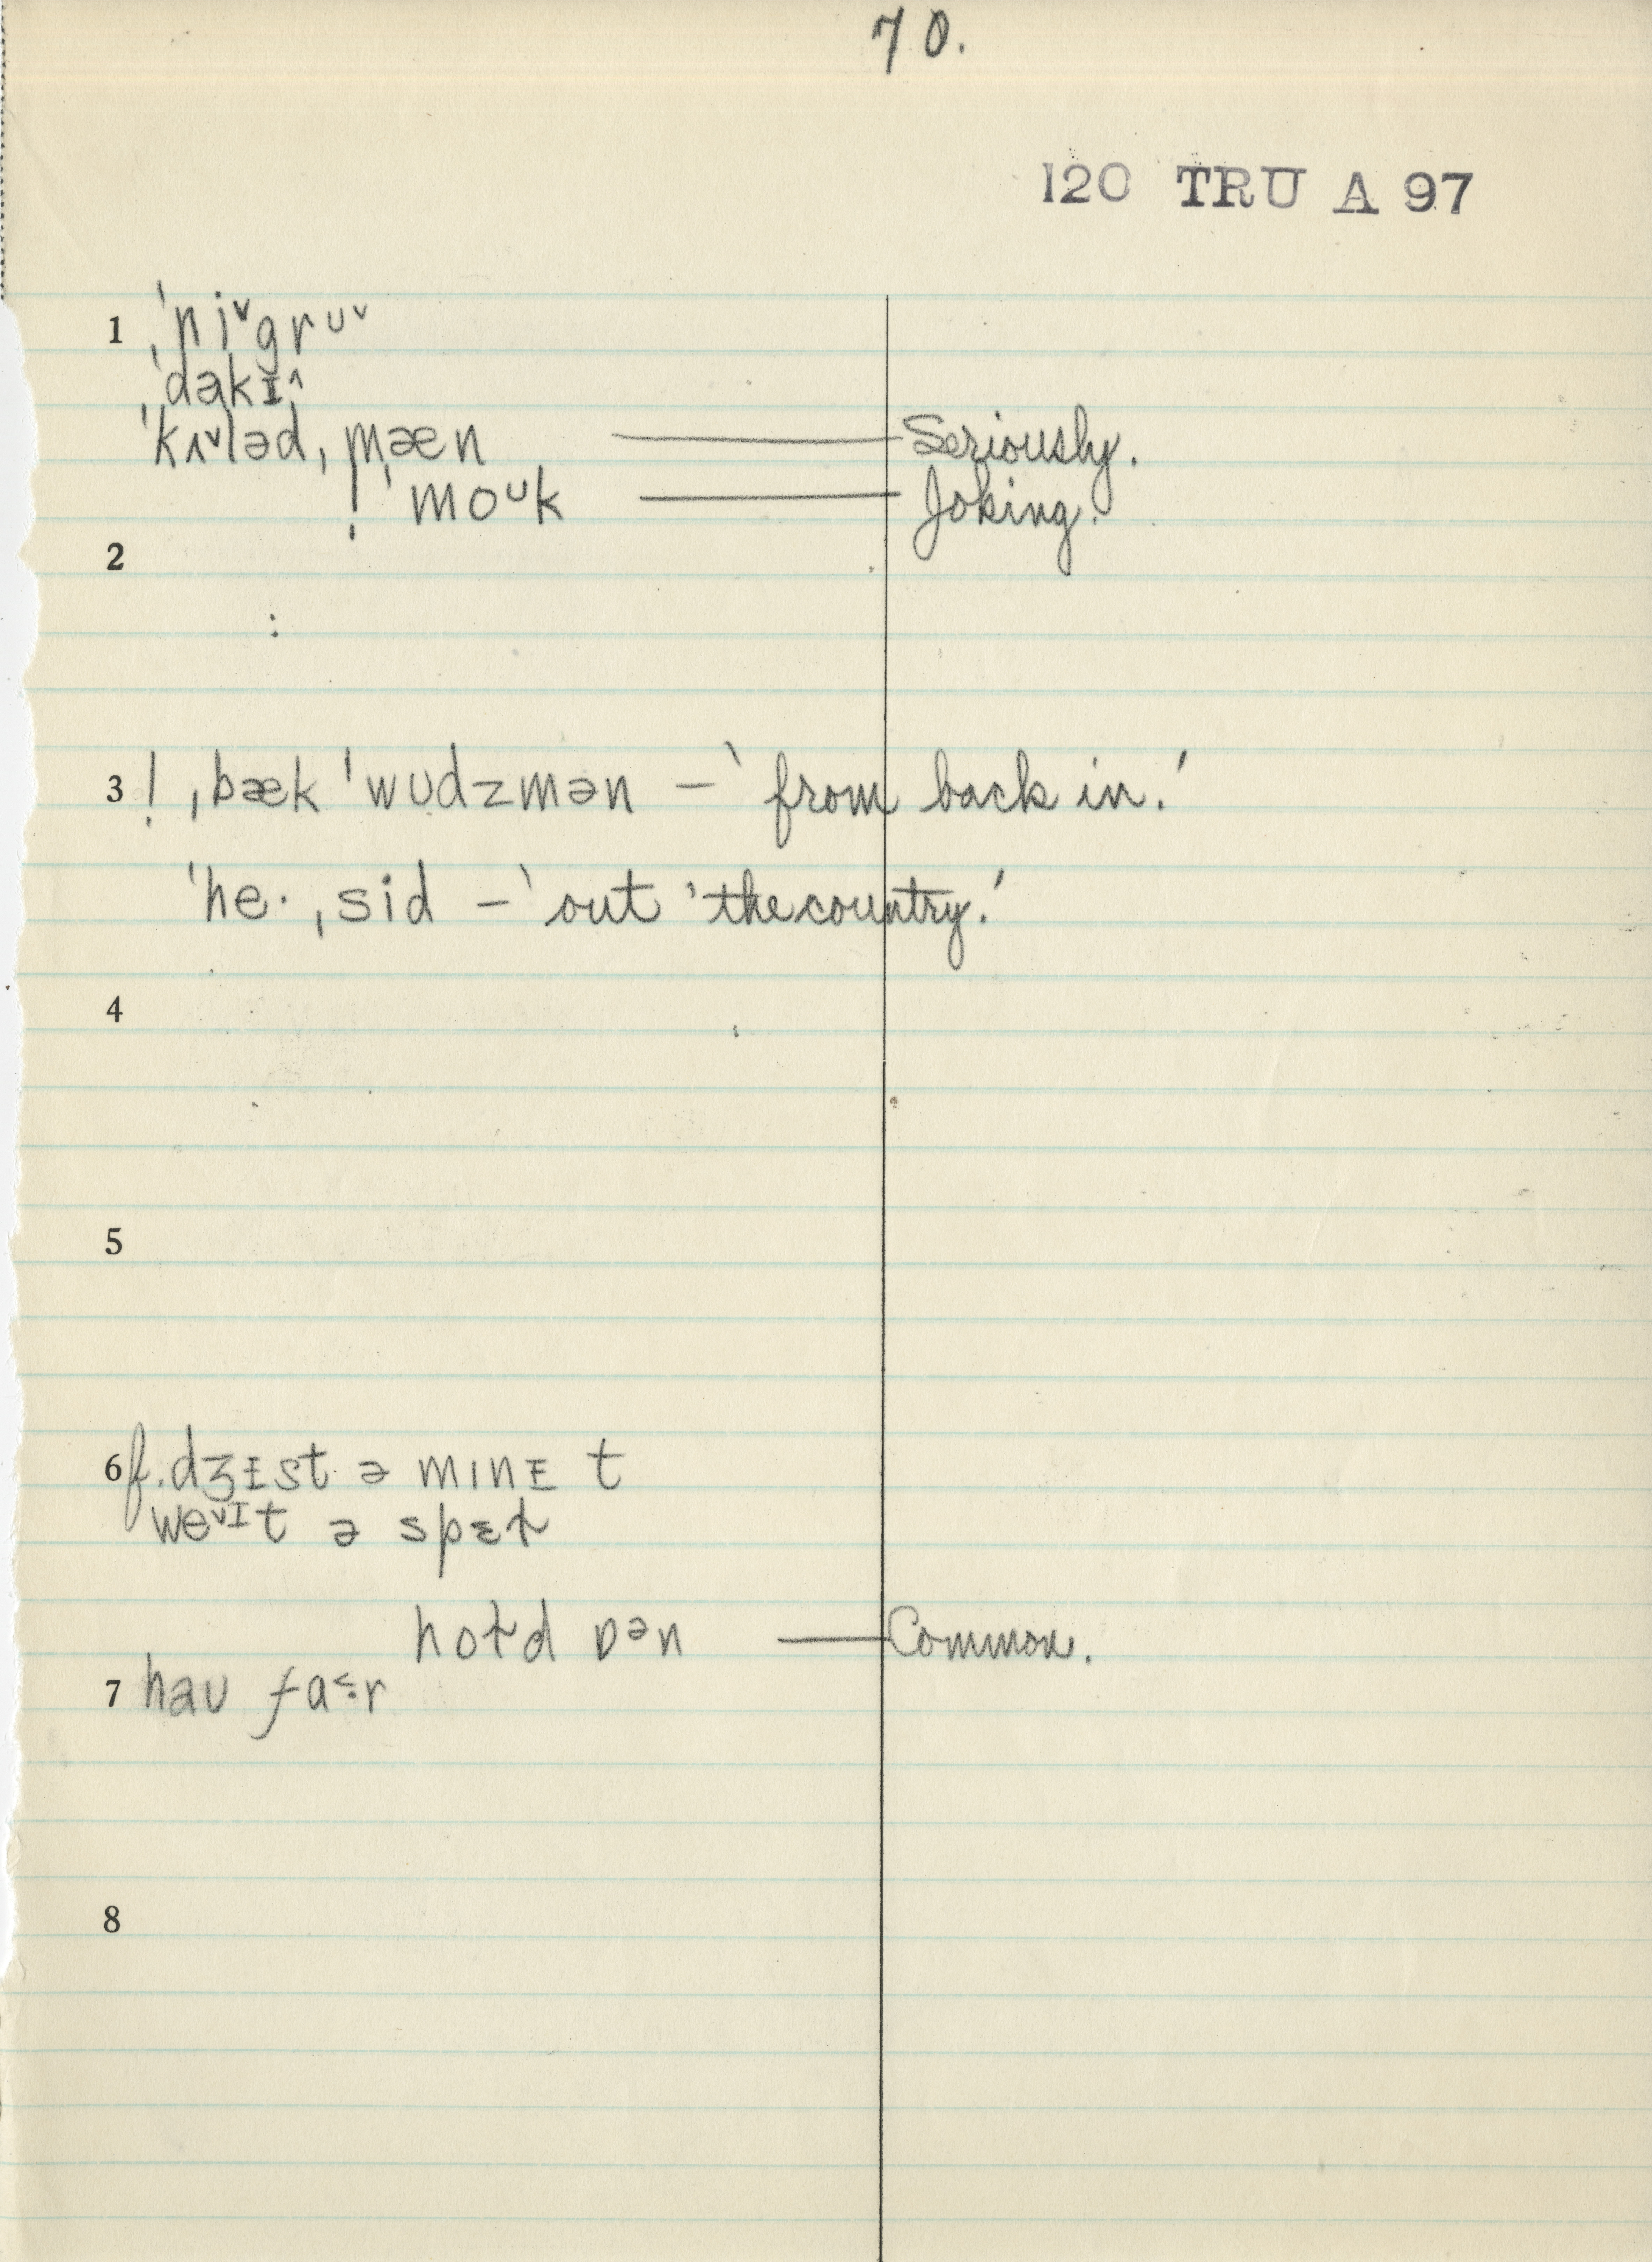 70.
120 TRU A 97
1 ˌˈniˇgrᴜˇ
ˌˈdakɪ^
ˈkʌˇləd, mæn — Seriously.
! ˈmoᶸk — Joking.
2
:
3 ! ˌbæk ˈwᴜdzmən – ‵from back in.′
ˈhe·ˌsid – ‵out 'the country.′
4
5
6 f. dʒɪst ə mɪnɪt
weˇᶦt ə spɛɫ
hoɫd ɒᵊn — Common.
7 haᴜ fa˂·r
8